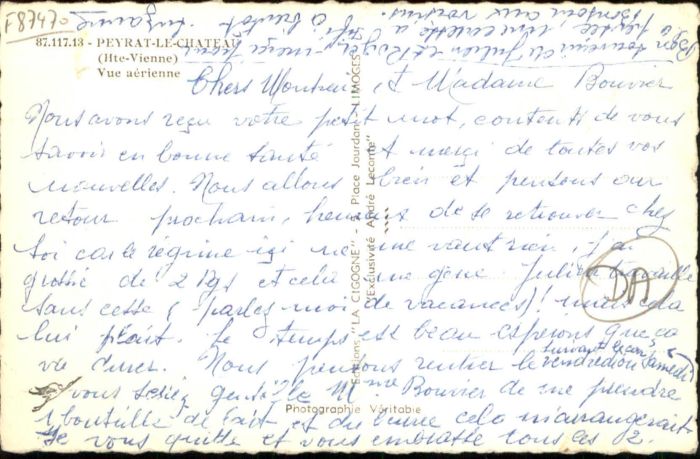 F87470
87.117.13 - PEYRAT-LE-CHATEAU
(Hte-Vienne)
Vue aérienne
Chers Monsieur, et Madame Bouvier
Nous avons reçu votre petit mot, contents de vous
savoir en bonne santé et merci de toutes vos
nouvelles. Nous allons bien et pensons au
retour prochain, heureux de se retrouver chez
soi car le régime ici ne me vaut rien, j'ai
grossi de 2 kgs et cela me gêne. Julien travaille
sans cesse, (parlez moi de vacances)! mais cela
lui plait. Le temps est beau espérons que ça
va durer. Nous pensons rentrer le vendredi ou samedi
suivant le car
si vous seriez gentille Mme Bouvier de me prendre
1 bouteille de lait et du beurre cela m'arrangerait
Je vous quitte et vous embrasse tous les 2.
Bon souvenir de Julien et Roger
à bientôt. Suzanne
Bonjour aux voisins.
DA
Editions "LA CIGOGNE" - 5 Place Jourdan - LIMOGES
"Exclusivité André Leconte"
Photographie Véritable